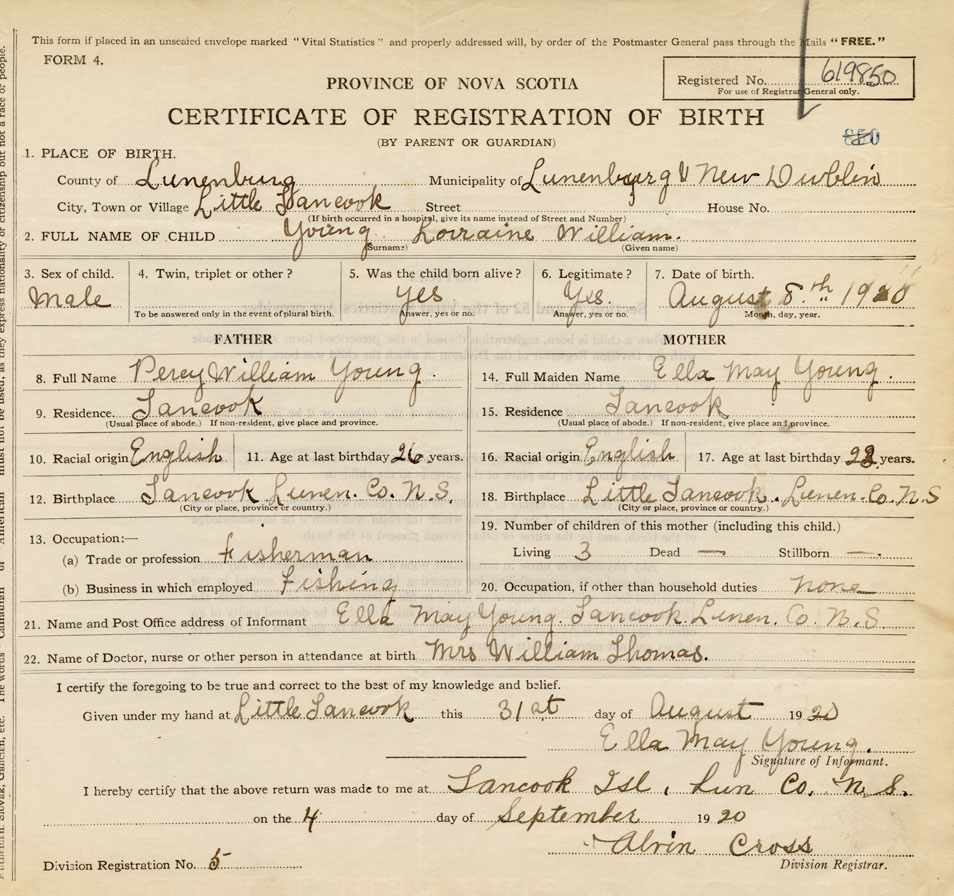 This form if placed in an unsealed envelope marked "Vital Statistics" and properly addressed will, by order of the Postmaster General pass through the Mails "FREE."
FORM 4.
Registered No. 619850
For use of Registrar General only.
PROVINCE OF NOVA SCOTIA
CERTIFICATE OF REGISTRATION OF BIRTH
850
(BY PARENT OR GUARDIAN)
1. PLACE OF BIRTH.
County of Lunenburg Municipality of Lunenburg & New Dublin
City, Town or Village Little Tancook Street House No.
(If birth occurred in a hospital, give its name instead of Street and Number)
2. FULL NAME OF CHILD Young Lorraine William.
(Surname) (Given name)
3. Sex of child. 4. Twin, triplet or other? 5. Was the child born alive? 6. Legitimate? 7. Date of birth.
Male Yes Yes. August 8.th 1920
To be answered only in the event of plural birth. Answer, yes or no. Answer, yes or no. Month, day, year.
FATHER MOTHER
8. Full Name Percy William Young. 14. Full Maiden Name Ella May Young.
9. Residence. Tancook 15. Residence Tancook
(Usual place of abode.) If non-resident, give place and province. (Usual place of abode.) If non-resident, give place and province.
10. Racial origin English 11. Age at last birthday 26 years. 16. Racial origin English 17. Age at last birthday 22 years.
12. Birthplace Tancook Lunen. Co. N.S. 18. Birthplace Little Tancook. Lunen. Co. N.S
(City or place, province or country.) (City or place, province or country.)
13. Occupation:— 19. Number of children of this mother (including this child.)
(a) Trade or profession Fisherman Living 3 Dead — Stillborn —
(b) Business in which employed Fishing 20. Occupation, if other than household duties None
21. Name and Post Office address of Informant Ella May Young. Tancook. Lunen. Co. N.S.
22. Name of Doctor, nurse or other person in attendance at birth Mrs William Thomas.
I certify the foregoing to be true and correct to the best of my knowledge and belief.
Given under my hand at Little Tancook this 31st day of August 1920
Ella May Young.
Signature of Informant.
I hereby certify that the above return was made to me at Tancook Isl, Lun Co, N.S.
on the 4 day of September 1920
Alvin Cross
Division Registration No. 5 Division Registrar.